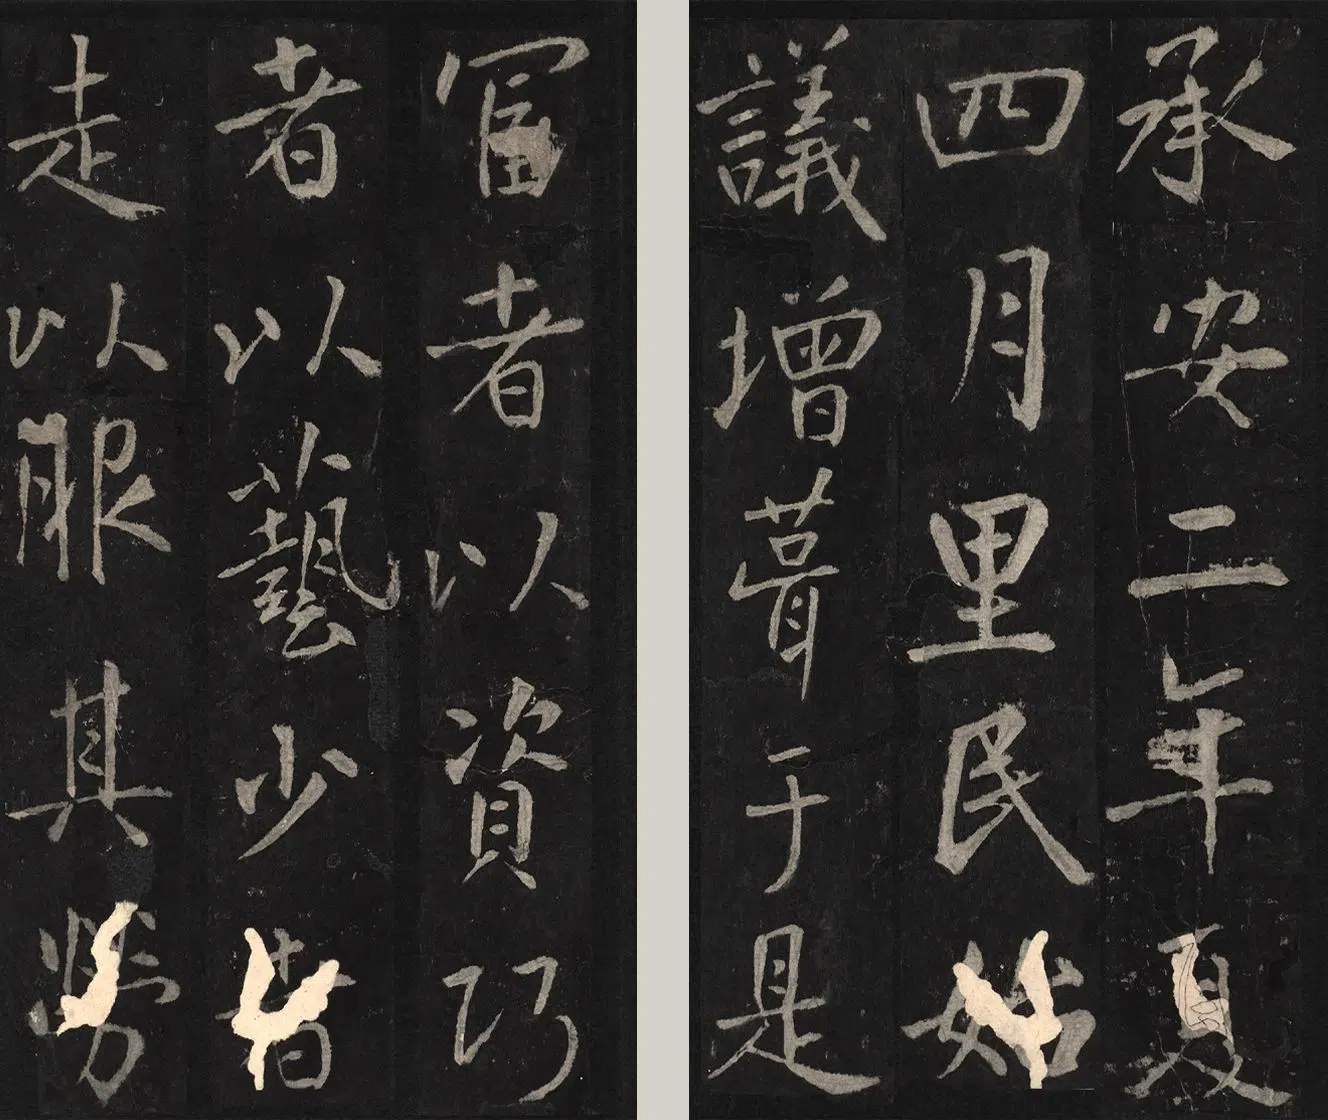 承安二年夏
四月里民始
議增葺于是
富者以資巧
者以藝少者
走以服其勞